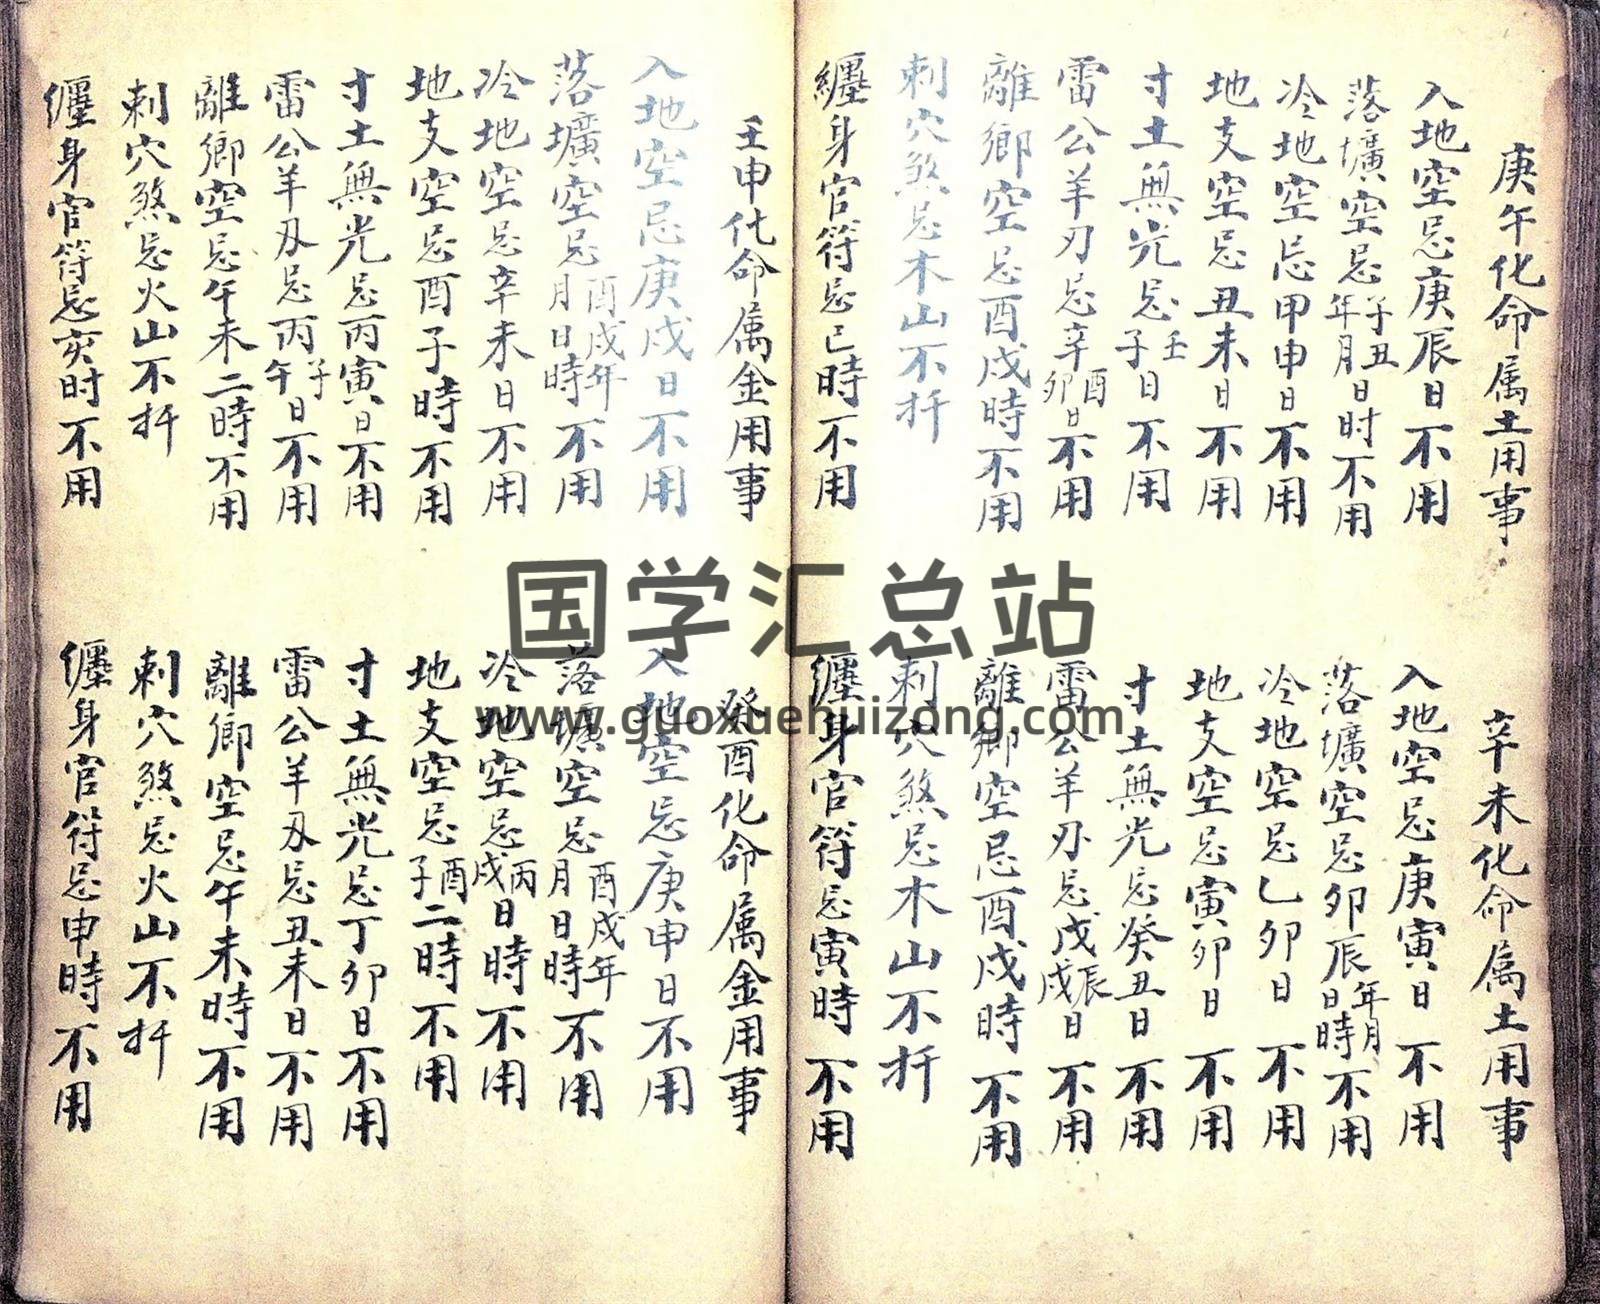 庚午化命属土用事
入地空忌庚辰日不用
落壙空忌子丑年月日时不用
冷地空忌甲申日不用
地支空忌丑未日不用
寸土無光忌壬子日不用
雷公羊刃忌辛酉卯日不用
離鄉空忌酉戌時不用
刺穴煞忌木山不扦
纏身官符忌巳時不用
辛未化命属土用事
入地空忌庚寅日不用
落壙空忌卯辰年月日時不用
冷地空忌乙卯日不用
地支空忌寅卯日不用
寸土無光忌癸丑日不用
雷公羊刃忌戊辰戌日不用
離鄉空忌酉戌時不用
刺穴煞忌木山不扦
纏身官符忌寅時不用
壬申化命属金用事
入地空忌庚戌日不用
落壙空忌酉戌年月日時不用
冷地空忌辛未日不用
地支空忌酉子時不用
寸土無光忌丙寅日不用
雷公羊刃忌丙子午日不用
離鄉空忌午未二時不用
刺穴煞忌火山不扦
纏身官符忌亥时不用
癸酉化命属金用事
入地空忌庚申日不用
落壙空忌酉戌年月日時不用
冷地空忌丙戌日時不用
地支空忌酉子二時不用
寸土無光忌丁卯日不用
雷公羊刃忌丑未日不用
離鄉空忌午未時不用
刺穴煞忌火山不扦
纏身官符忌申時不用
国学汇总站
www.guoxuehuizong.com